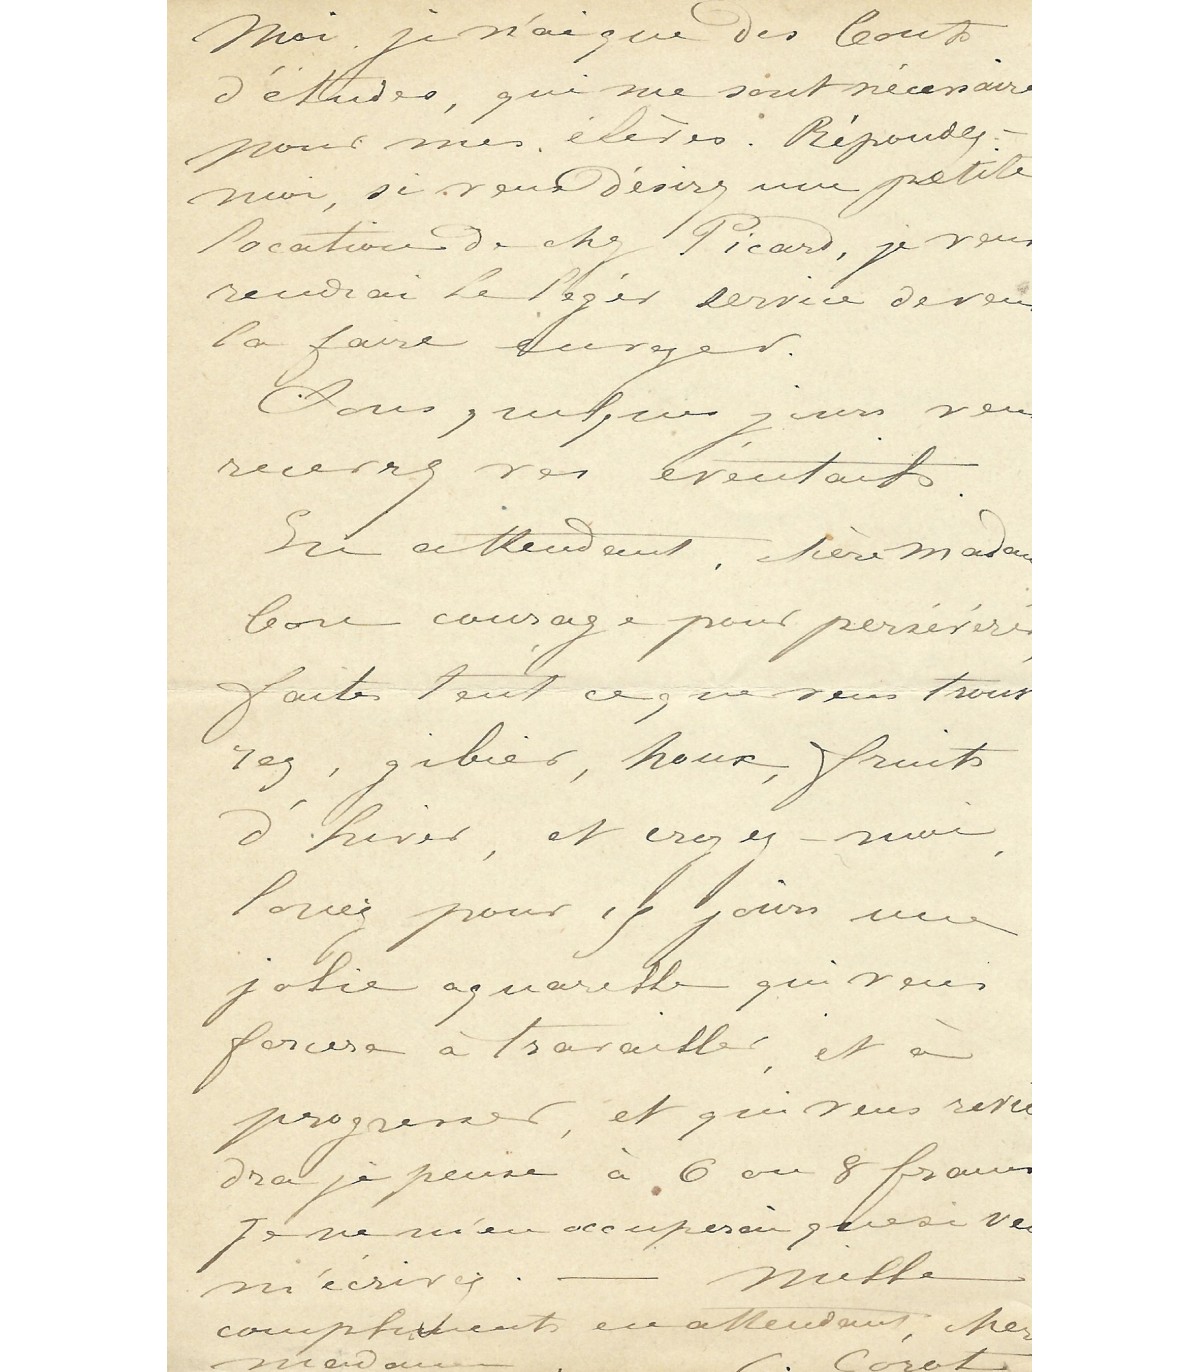 Moi je n'ai que des bouts
d'études, qui me sont nécessaire
pour mes élèves. Répondez-
moi, si vous désirez une petite
location de chez Picard, je vous
rendrai le léger service de vous
la faire envoyer.
Sous quelques jours vous
recevrez vos éventails.
En attendant, chère Madam
bon courage pour persévérer,
faites tout ce que vous trouv
rez, gibier, houx, fruits
d'hiver, et croyez-moi,
louez pour 15 jours une
jolie aquarelle qui vous
forcera à travailler, et à
progresser, et qui vous revie
dra je pense à 6 ou 8 francs
Je ne m'en occuperai que si vou
m'écrivez. — Mille
compliments en attendant, chèr
madame. Corot